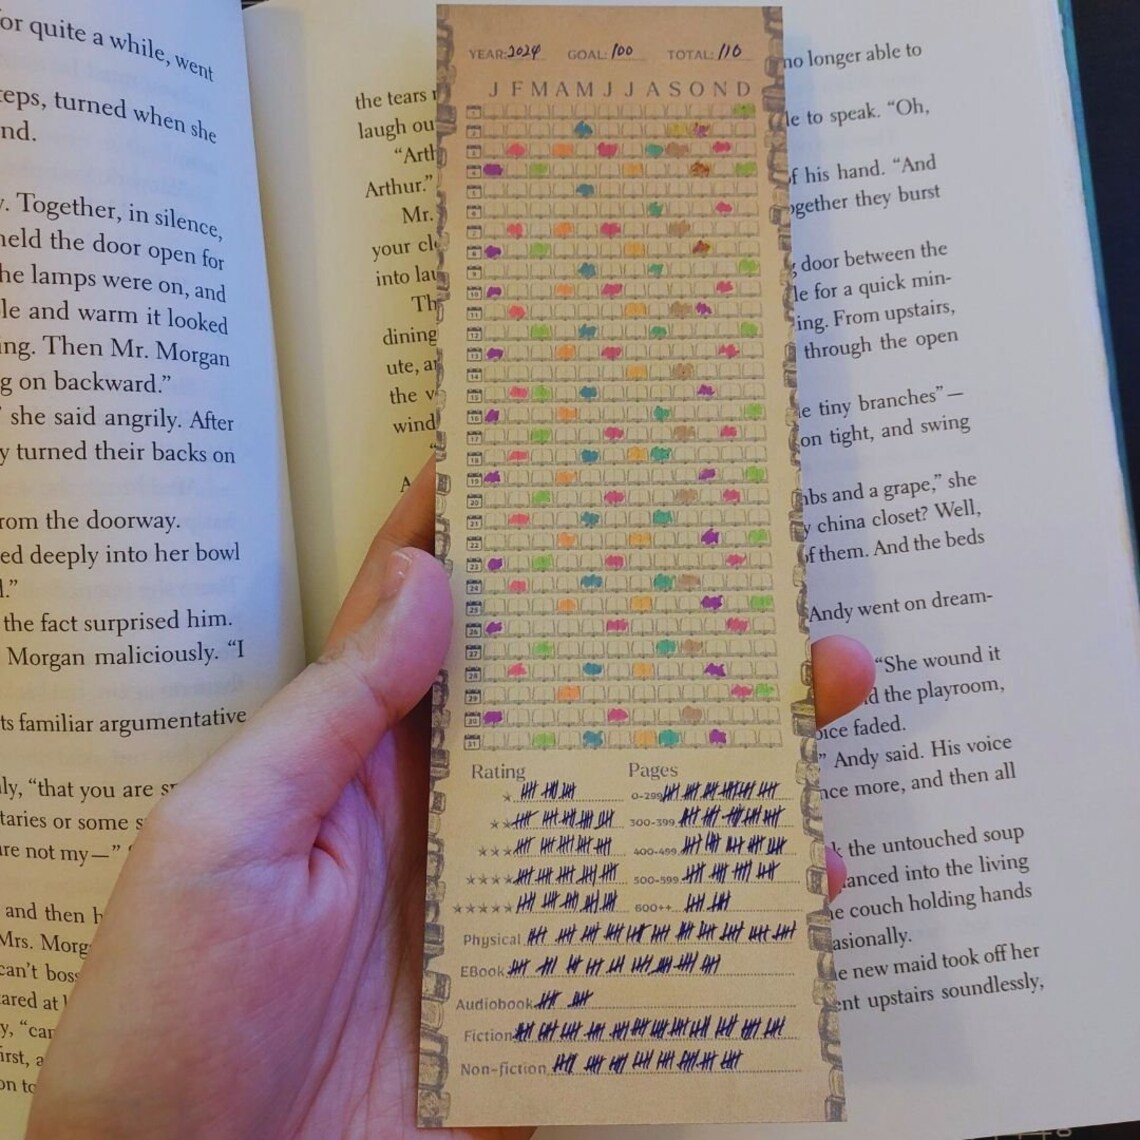 or quite a while, went
eps, turned when she
nd.
y. Together, in silence,
held the door open for
he lamps were on, and
le and warm it looked
ing. Then Mr. Morgan
g on backward.”
” she said angrily. After
y turned their backs on
rom the doorway.
ed deeply into her bowl
l.”
the fact surprised him.
Morgan maliciously. “I
ts familiar argumentative
ly, “that you are s
taries or some s
are not my—”
and then h
Mrs. Morg
can’t boss
ared at
y, “car
irst, a
on to
the tears
laugh ou
“Arth
Arthur.”
Mr.
your cl
into lau
Th
dining
ute, a
the v
wind
A
YEAR: 2024 GOAL: 100 TOTAL: 110
J F M A M J J A S O N D
1
2
3
4
5
6
7
8
9
10
11
12
13
14
15
16
17
18
19
20
21
22
23
24
25
26
27
28
29
30
31
Rating Pages
★ 0-299
★★ 300-399
★★★ 400-499
★★★★ 500-599
★★★★★ 600++
Physical
EBook
Audiobook
Fiction
Non-fiction
no longer able to
le to speak. “Oh,
of his hand. “And
ogether they burst
g door between the
le for a quick min-
ing. From upstairs,
through the open
e tiny branches”—
on tight, and swing
mbs and a grape,” she
y china closet? Well,
of them. And the beds
Andy went on dream-
“She wound it
d the playroom,
oice faded.
” Andy said. His voice
nce more, and then all
k the untouched soup
lanced into the living
e couch holding hands
asionally.
e new maid took off her
ent upstairs soundlessly,